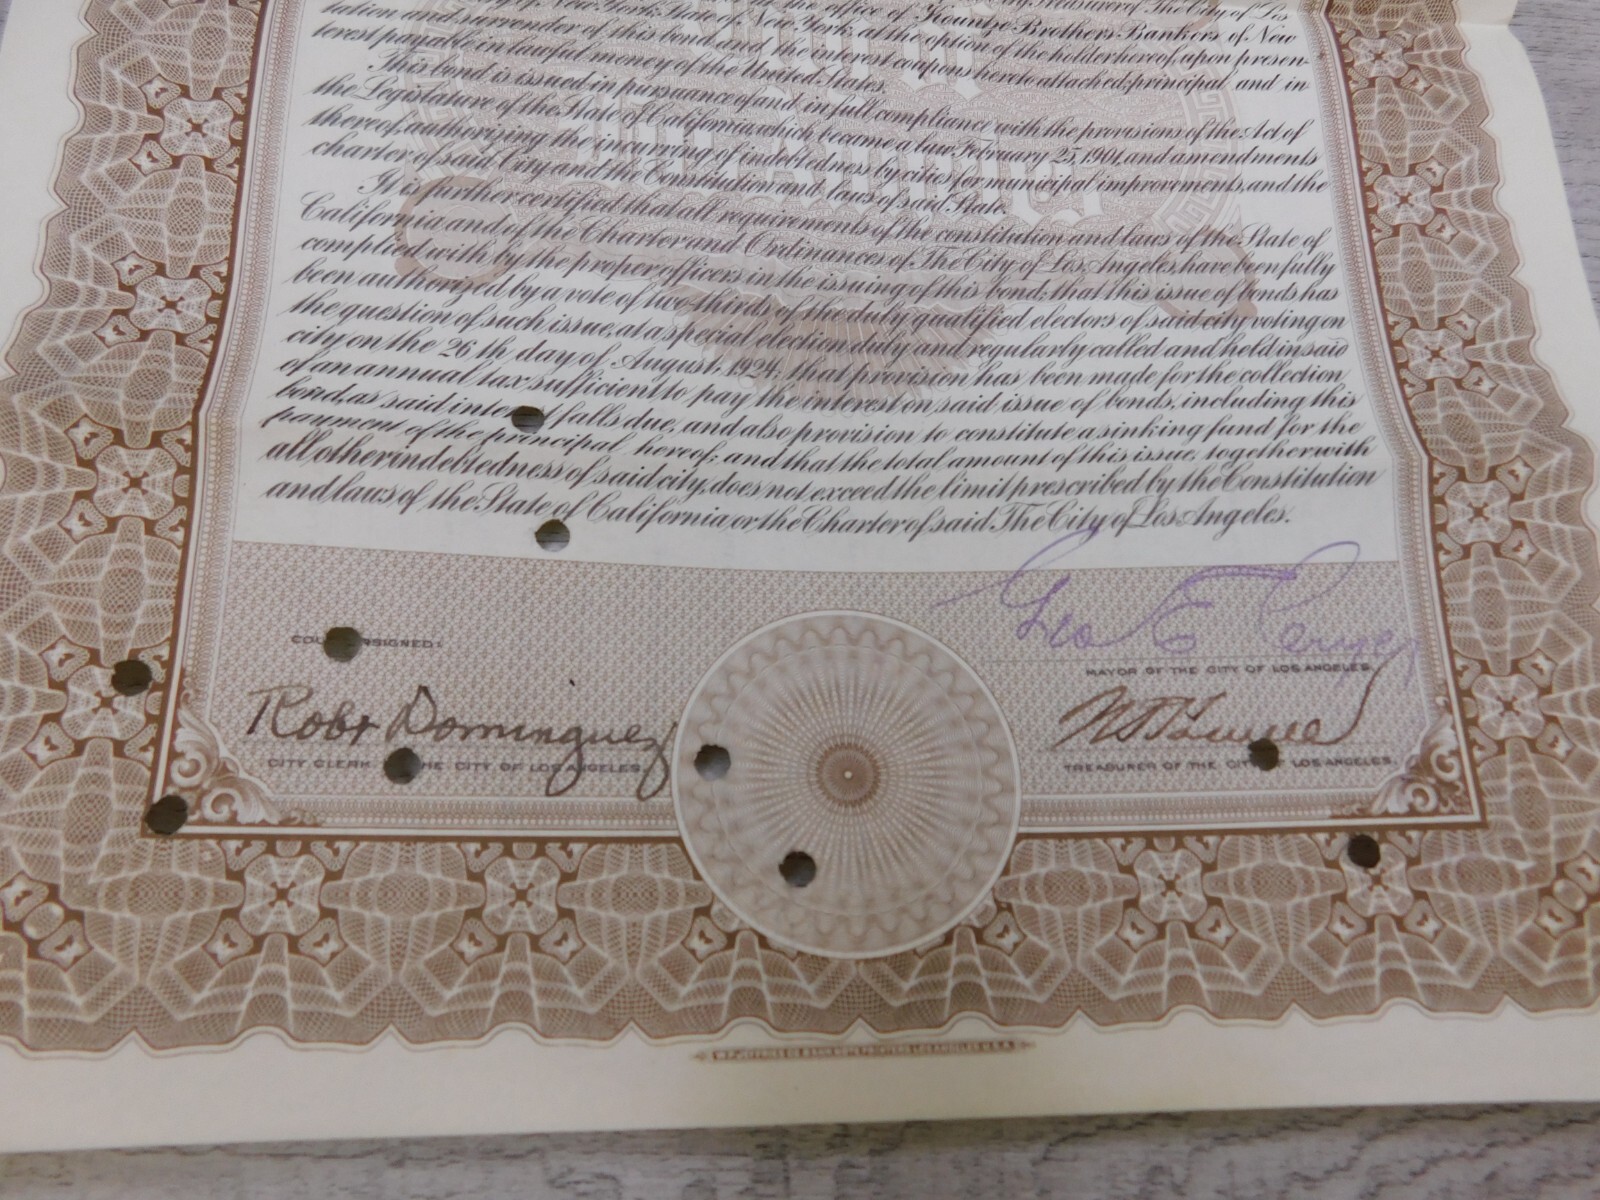 of New York, State of New York, at the office of Kountze Brothers Bankers of New
York, at the option of the holder hereof, upon presen-
tation and surrender of this bond and the interest coupons hereto attached; principal and in-
terest payable in lawful money of the United States.
This bond is issued in pursuance of and in full compliance with the provisions of the Act of
the Legislature of the State of California, which became a law February 25, 1901, and amendments
thereof, authorizing the incurring of indebtedness by cities for municipal improvements, and the
charter of said City and the Constitution and laws of said State.
It is further certified that all requirements of the constitution and laws of the State of
California and of the Charter and Ordinances of The City of Los Angeles, have been fully
complied with by the proper officers in the issuing of this bond; that this issue of bonds has
been authorized by a vote of two-thirds of the duly qualified electors of said city voting on
the question of such issue, at a special election duly and regularly called and held in said
city on the 26th day of August, 1924; that provision has been made for the collection
of an annual tax sufficient to pay the interest on said issue of bonds, including this
bond, as said inte t falls due, and also provision to constitute a sinking fund for the
payment of the principal hereof; and that the total amount of this issue, together with
all other indebtedness of said city, does not exceed the limit prescribed by the Constitution
and laws of the State of California, or the Charter of said The City of Los Angeles.
Geo E
COU RSIGNED:
MAYOR OF THE CITY OF LOS ANGELES.
Robt Dominguez
CITY CLERK HE CITY OF LOS ANGELES.
TREASURER OF THE CIT LOS ANGELES.